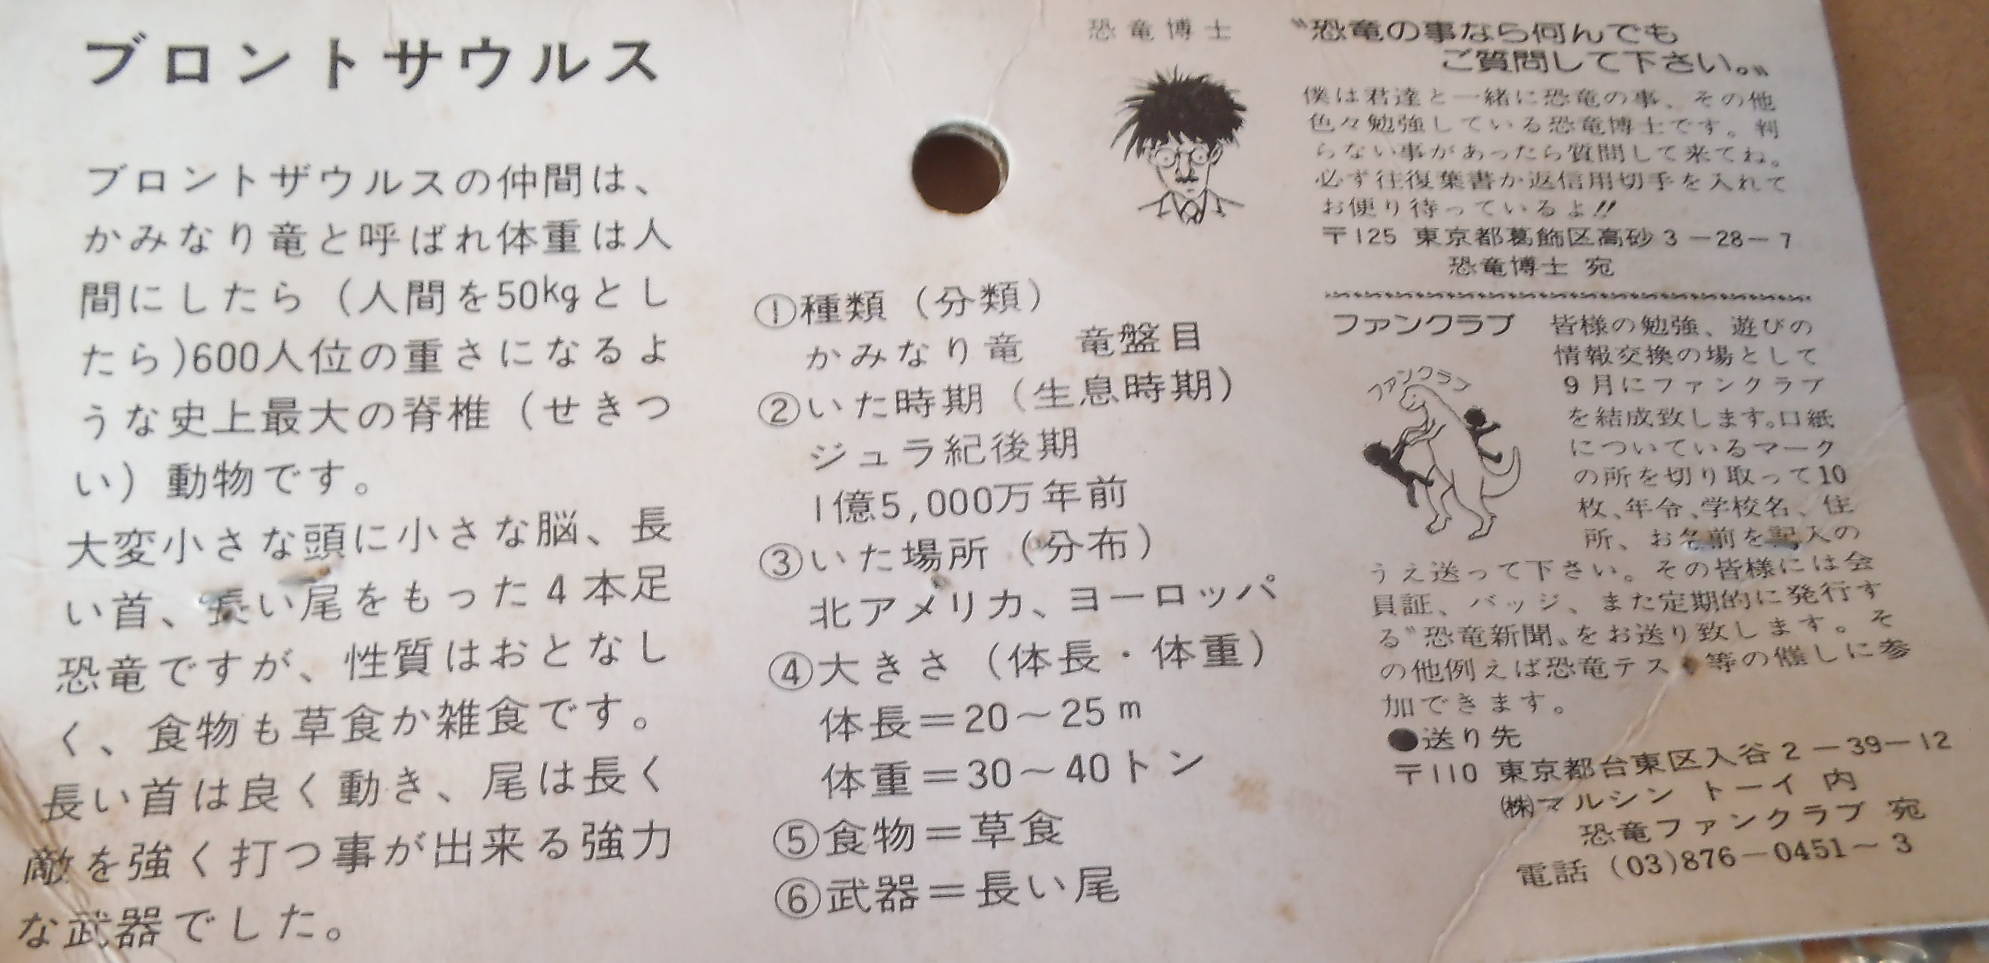 ブロントサウルス
ブロントザウルスの仲間は、
かみなり竜と呼ばれ体重は人
間にしたら（人間を50kgとし
たら)600人位の重さになるよ
うな史上最大の脊椎（せきつ
い）動物です。
大変小さな頭に小さな脳、長
い首、長い尾をもった4本足
恐竜ですが、性質はおとなし
く、食物も草食か雑食です。
長い首は良く動き、尾は長く
敵を強く打つ事が出来る強力
な武器でした。
①種類（分類）
かみなり竜　竜盤目
②いた時期（生息時期）
ジュラ紀後期
1億5,000万年前
③いた場所（分布）
北アメリカ、ヨーロッパ
④大きさ（体長・体重）
体長＝20～25m
体重＝30～40トン
⑤食物＝草食
⑥武器＝長い尾
恐竜博士
〝恐竜の事なら何んでも
ご質問して下さい。〟
僕は君達と一緒に恐竜の事、その他
色々勉強している恐竜博士です。判
らない事があったら質問して来てね。
必ず往復葉書か返信用切手を入れて
お便り待っているよ!!
〒125 東京都葛飾区高砂3－28－7
恐竜博士 宛
ファンクラブ
ファンクラブ
皆様の勉強、遊びの
情報交換の場として
9月にファンクラブ
を結成致します。口紙
についているマーク
の所を切り取って10
枚、年令、学校名、住
所、お名前を記入の
うえ送って下さい。その皆様には会
員証、バッジ、また定期的に発行す
る〝恐竜新聞〟をお送り致します。そ
の他例えば恐竜テスト等の催しに参
加できます。
●送り先
〒110 東京都台東区入谷2－39－12
㈱マルシン トーイ 内
恐竜ファンクラブ 宛
電話（03)876－0451～3